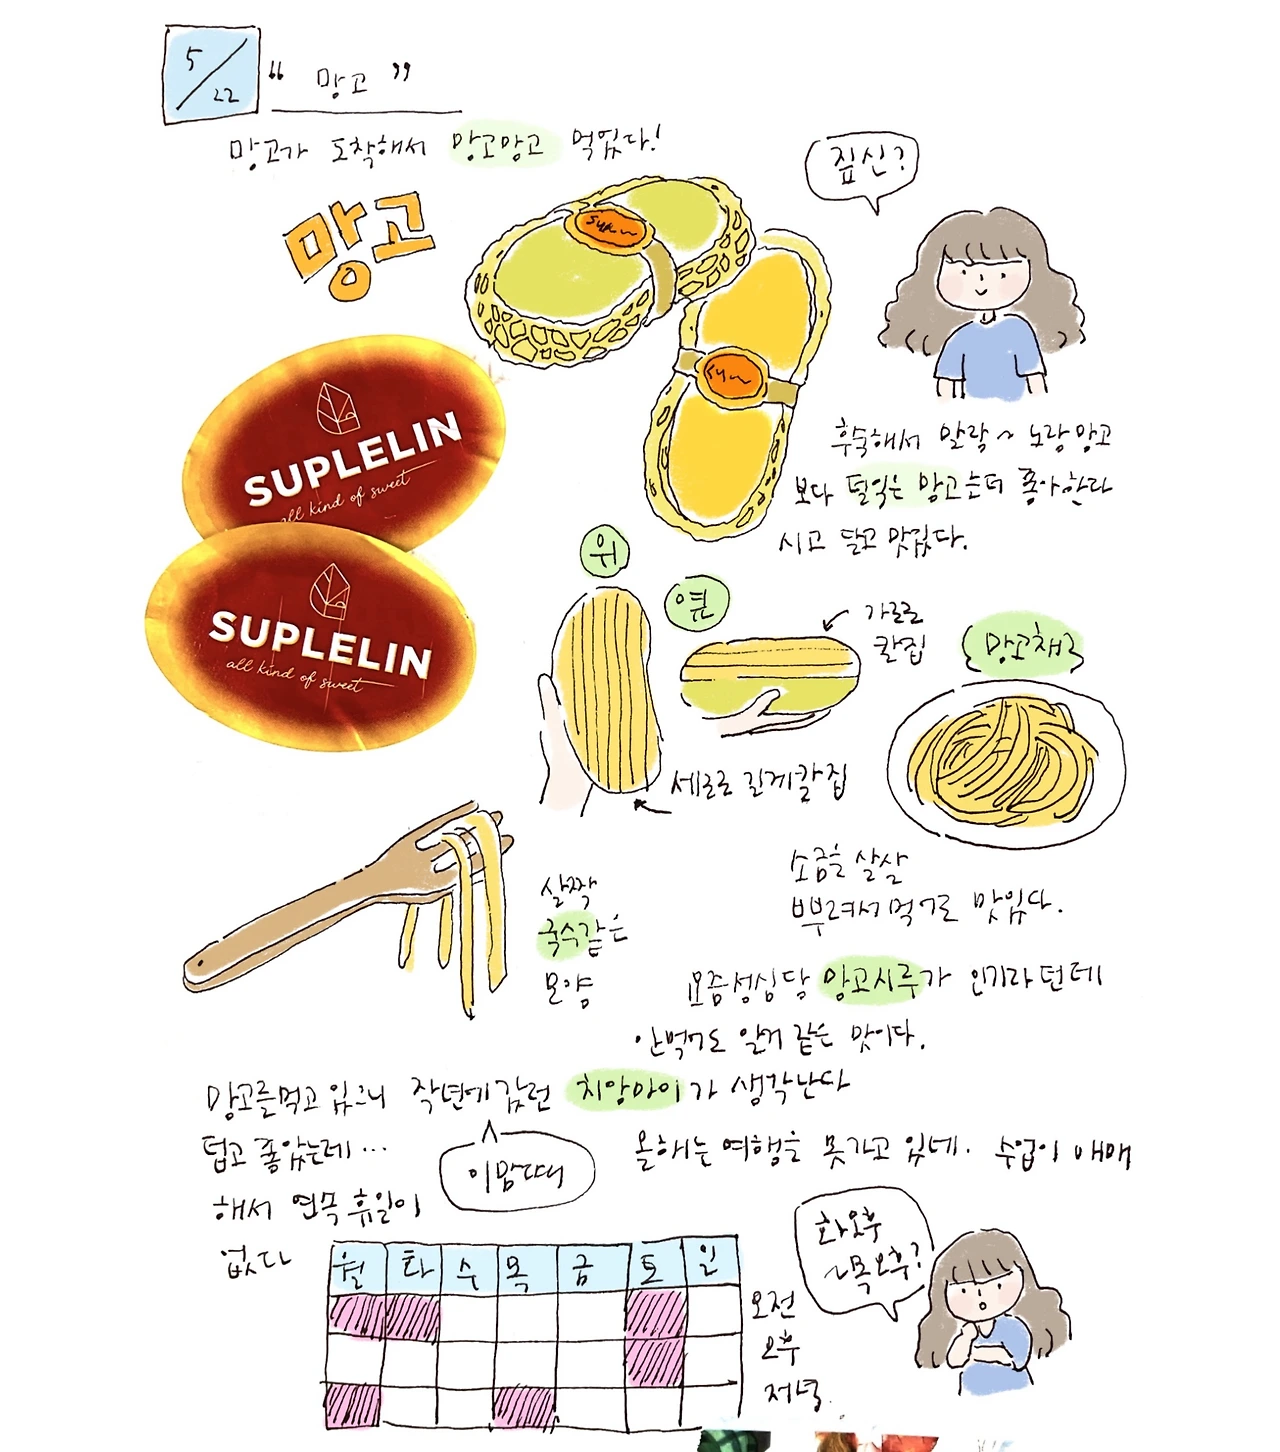 5/22
“ 망고 ”
망고가 도착해서 망고망고 먹었다!
망고
짚신?
SUPLELIN
all kind of sweet
SUPLELIN
all kind of sweet
후숙해서 말랑~ 노랑망고
보다 덜익은 망고는더 좋아한다
시고 달고 맛있다.
위
옆
가로로
칼집
망고채?
세로로 길게칼집
소금을 살살
뿌려서먹기도 맛있다.
살짝
국수같은
모양
요즘성심당 망고시루가 인기라던데
안먹어도 알거 같은 맛이다.
망고를먹고 있으니 작년에갔던 치앙마이가 생각난다
이맘때
덥고 좋았는데...
올해는 여행을 못가고 있네. 수업이 애매
해서 연속 휴일이
없다
화오후
~목오후?
월 화 수 목 금 토 일
오전
오후
저녁